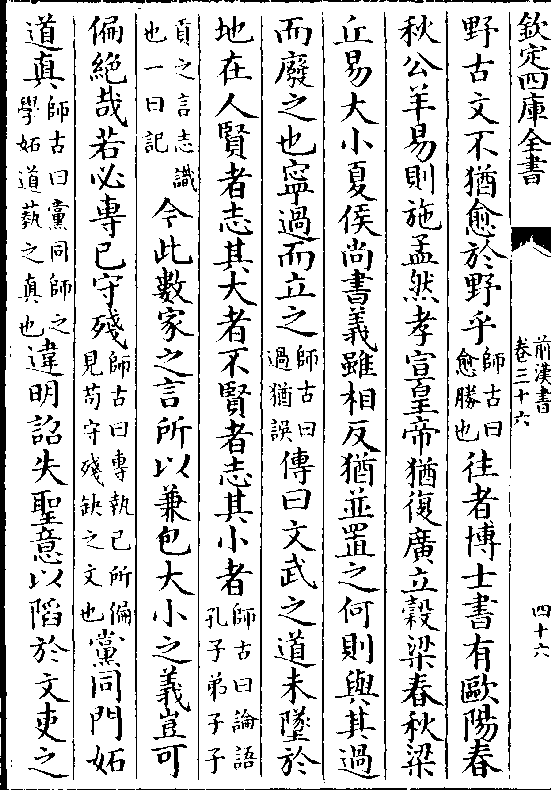 欽定四庫全書
前漢書
卷三十六
四十六
野古文不猶愈於野乎師古曰愈勝也往者博士書有歐陽春
秋公羊易則施孟然孝宣皇帝猶復廣立穀梁春秋梁
丘易大小夏侯尚書義雖相反猶並置之何則與其過
而廢之也寧過而立之師古曰過猶誤傳曰文武之道未墜於
地在人賢者志其大者不賢者志其小者師古曰論語孔子弟子子
貢之言志識也一曰記今此數家之言所以兼包大小之義豈可
偏絕哉若必專己守殘師古曰專執己所偏見苟守殘缺之文也黨同門妬
道真師古曰黨同師之學妬道蓺之真也違明詔失聖意以陷於文吏之